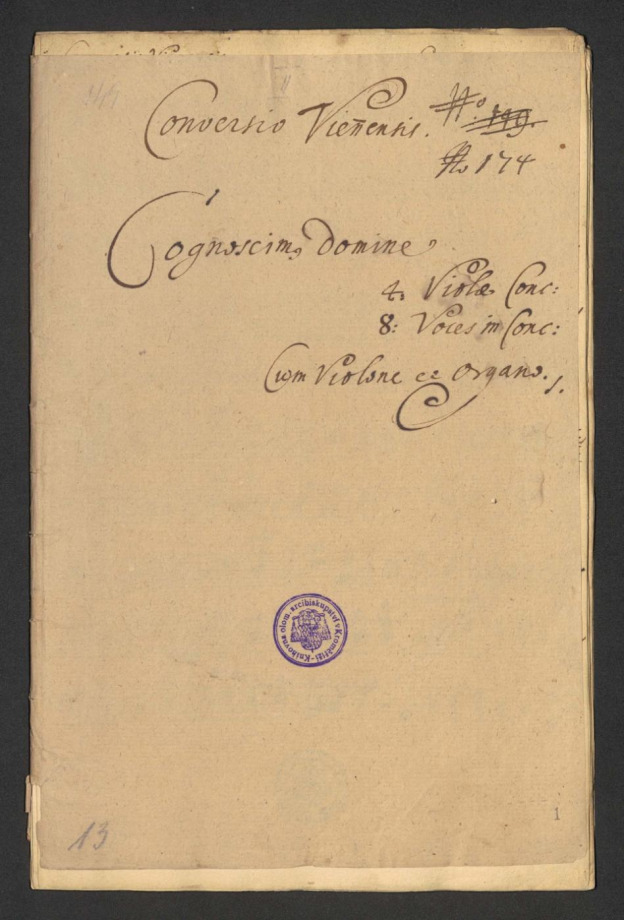 Conversio Vieñensis. No. 149.
No 174
Cognoscimꝰ Domine
4. Violæ Conc:
8: Voces in Conc:
Cum Violone et Organo.
Knihovna olom. arcibiskupství v Kroměříži
13
1